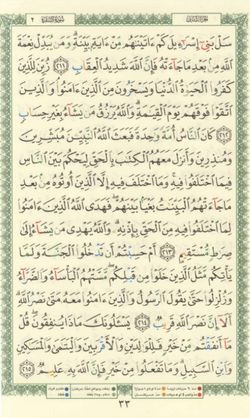 سَلْ بَنِىٓ إِسْرَٰٓءِيلَ كَمْ ءَاتَيْنَٰهُم مِّنْ ءَايَةٍۭ بَيِّنَةٍ وَمَن يُبَدِّلْ نِعْمَةَ
ٱللَّهِ مِنۢ بَعْدِ مَا جَآءَتْهُ فَإِنَّ ٱللَّهَ شَدِيدُ ٱلْعِقَابِ ٢١١ زُيِّنَ لِلَّذِينَ
كَفَرُوا۟ ٱلْحَيَوٰةُ ٱلدُّنْيَا وَيَسْخَرُونَ مِنَ ٱلَّذِينَ ءَامَنُوا۟ وَٱلَّذِينَ
ٱتَّقَوْا۟ فَوْقَهُمْ يَوْمَ ٱلْقِيَٰمَةِ وَٱللَّهُ يَرْزُقُ مَن يَشَآءُ بِغَيْرِ حِسَابٍ
٢١٢ كَانَ ٱلنَّاسُ أُمَّةً وَٰحِدَةً فَبَعَثَ ٱللَّهُ ٱلنَّبِيِّۦنَ مُبَشِّرِينَ
وَمُنذِرِينَ وَأَنزَلَ مَعَهُمُ ٱلْكِتَٰبَ بِٱلْحَقِّ لِيَحْكُمَ بَيْنَ ٱلنَّاسِ
فِيمَا ٱخْتَلَفُوا۟ فِيهِ وَمَا ٱخْتَلَفَ فِيهِ إِلَّا ٱلَّذِينَ أُوتُوهُ مِنۢ بَعْدِ
مَا جَآءَتْهُمُ ٱلْبَيِّنَٰتُ بَغْيًۢا بَيْنَهُمْ فَهَدَى ٱللَّهُ ٱلَّذِينَ ءَامَنُوا۟
لِمَا ٱخْتَلَفُوا۟ فِيهِ مِنَ ٱلْحَقِّ بِإِذْنِهِۦ وَٱللَّهُ يَهْدِى مَن يَشَآءُ إِلَىٰ
صِرَٰطٍ مُّسْتَقِيمٍ ٢١٣ أَمْ حَسِبْتُمْ أَن تَدْخُلُوا۟ ٱلْجَنَّةَ وَلَمَّا
يَأْتِكُم مَّثَلُ ٱلَّذِينَ خَلَوْا۟ مِن قَبْلِكُم مَّسَّتْهُمُ ٱلْبَأْسَآءُ وَٱلضَّرَّآءُ
وَزُلْزِلُوا۟ حَتَّىٰ يَقُولَ ٱلرَّسُولُ وَٱلَّذِينَ ءَامَنُوا۟ مَعَهُۥ مَتَىٰ نَصْرُ ٱللَّهِ
أَلَآ إِنَّ نَصْرَ ٱللَّهِ قَرِيبٌ ٢١٤ يَسْـَٔلُونَكَ مَاذَا يُنفِقُونَ قُلْ
مَآ أَنفَقْتُم مِّنْ خَيْرٍ فَلِلْوَٰلِدَيْنِ وَٱلْأَقْرَبِينَ وَٱلْيَتَٰمَىٰ وَٱلْمَسَٰكِينِ
وَٱبْنِ ٱلسَّبِيلِ وَمَا تَفْعَلُوا۟ مِنْ خَيْرٍ فَإِنَّ ٱللَّهَ بِهِۦ عَلِيمٌ ٢١٥
٣٣